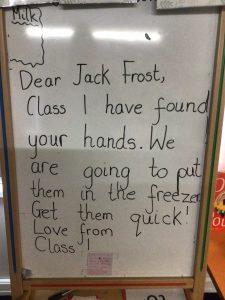 Milk
Dear Jack Frost,
Class 1 have found
your hands. We
are going to put
them in the freezer
Get them quick!
Love from
Class 1